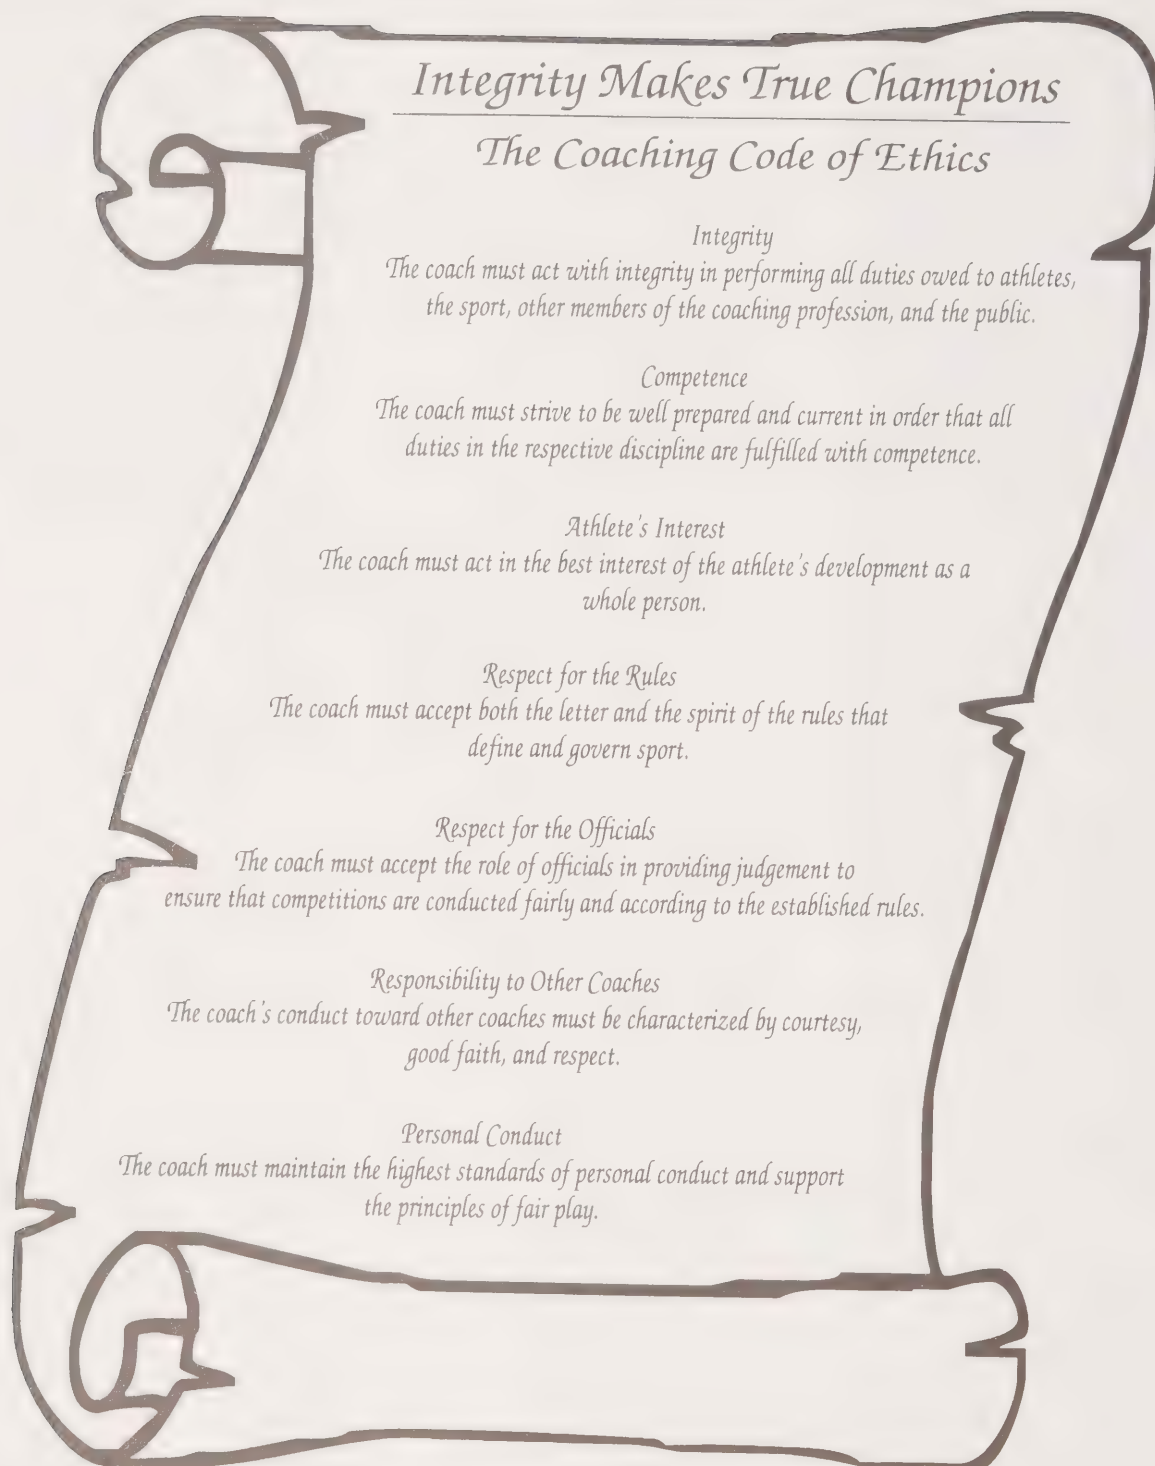 Integrity Makes True Champions
The Coaching Code of Ethics
Integrity
The coach must act with integrity in performing all duties owed to athletes,
the sport, other members of the coaching profession, and the public.
Competence
The coach must strive to be well prepared and current in order that all
duties in the respective discipline are fulfilled with competence.
Athlete's Interest
The coach must act in the best interest of the athlete's development as a
whole person.
Respect for the Rules
The coach must accept both the letter and the spirit of the rules that
define and govern sport.
Respect for the Officials
The coach must accept the role of officials in providing judgement to
ensure that competitions are conducted fairly and according to the established rules.
Responsibility to Other Coaches
The coach's conduct toward other coaches must be characterized by courtesy,
good faith, and respect.
Personal Conduct
The coach must maintain the highest standards of personal conduct and support
the principles of fair play.